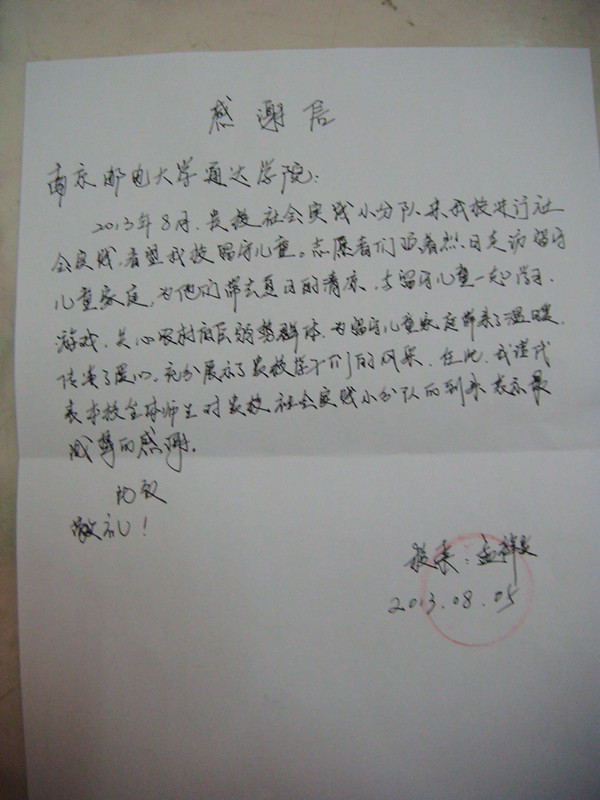 感谢信
南京邮电大学通达学院：
2013年8月，贵校社会实践小分队来我校进行社
会实践，看望我校留守儿童。志愿者们顶着烈日走访留守
儿童家庭，为他们带去夏日的清凉，与留守儿童一起学习、
游戏，关心农村的弱势群体，为留守儿童家庭带来了温暖，
传递了爱心。充分展示了贵校学子们的风采，在此，我谨代
表本校全体师生对贵校社会实践小分队的到来表示最
诚挚的感谢。
此致
敬礼！
校长：孟祥
2013.08.05